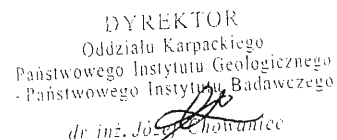 DYREKTOR
Oddziału Karpackiego
Państwowego Instytutu Geologicznego
- Państwowego Instytutu Badawczego
dr inż. Józef Chowaniec